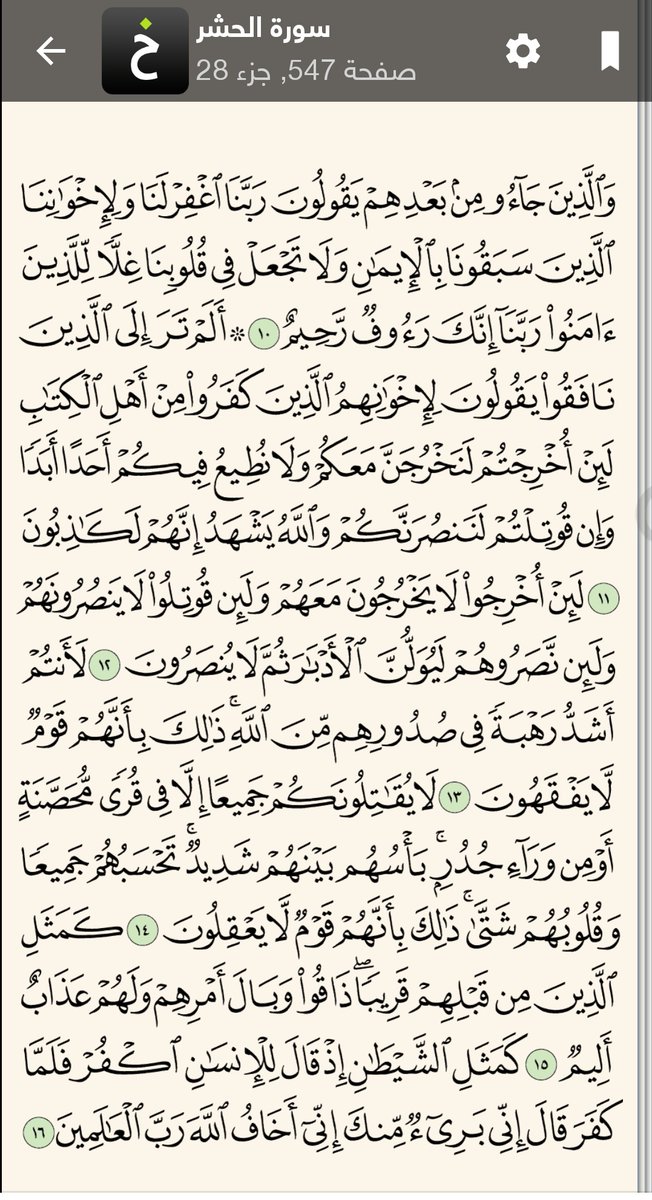 سورة الحشر
صفحة 547, جزء 28
خ
وَٱلَّذِينَ جَآءُو مِنۢ بَعْدِهِمْ يَقُولُونَ رَبَّنَا ٱغْفِرْ لَنَا وَلِإِخْوَٰنِنَا
ٱلَّذِينَ سَبَقُونَا بِٱلْإِيمَٰنِ وَلَا تَجْعَلْ فِى قُلُوبِنَا غِلًّا لِّلَّذِينَ
ءَامَنُوا۟ رَبَّنَآ إِنَّكَ رَءُوفٌ رَّحِيمٌ ١٠ ۞ أَلَمْ تَرَ إِلَى ٱلَّذِينَ
نَافَقُوا۟ يَقُولُونَ لِإِخْوَٰنِهِمُ ٱلَّذِينَ كَفَرُوا۟ مِنْ أَهْلِ ٱلْكِتَٰبِ
لَئِنْ أُخْرِجْتُمْ لَنَخْرُجَنَّ مَعَكُمْ وَلَا نُطِيعُ فِيكُمْ أَحَدًا أَبَدًا
وَإِن قُوتِلْتُمْ لَنَنصُرَنَّكُمْ وَٱللَّهُ يَشْهَدُ إِنَّهُمْ لَكَٰذِبُونَ
١١ لَئِنْ أُخْرِجُوا۟ لَا يَخْرُجُونَ مَعَهُمْ وَلَئِن قُوتِلُوا۟ لَا يَنصُرُونَهُمْ
وَلَئِن نَّصَرُوهُمْ لَيُوَلُّنَّ ٱلْأَدْبَٰرَ ثُمَّ لَا يُنصَرُونَ ١٢ لَأَنتُمْ
أَشَدُّ رَهْبَةً فِى صُدُورِهِم مِّنَ ٱللَّهِ ۚ ذَٰلِكَ بِأَنَّهُمْ قَوْمٌ
لَّا يَفْقَهُونَ ١٣ لَا يُقَٰتِلُونَكُمْ جَمِيعًا إِلَّا فِى قُرًى مُّحَصَّنَةٍ
أَوْ مِن وَرَآءِ جُدُرٍۭ ۚ بَأْسُهُم بَيْنَهُمْ شَدِيدٌ ۚ تَحْسَبُهُمْ جَمِيعًا
وَقُلُوبُهُمْ شَتَّىٰ ۚ ذَٰلِكَ بِأَنَّهُمْ قَوْمٌ لَّا يَعْقِلُونَ ١٤ كَمَثَلِ
ٱلَّذِينَ مِن قَبْلِهِمْ قَرِيبًا ۖ ذَاقُوا۟ وَبَالَ أَمْرِهِمْ وَلَهُمْ عَذَابٌ
أَلِيمٌ ١٥ كَمَثَلِ ٱلشَّيْطَٰنِ إِذْ قَالَ لِلْإِنسَٰنِ ٱكْفُرْ فَلَمَّا
كَفَرَ قَالَ إِنِّى بَرِىٓءٌ مِّنكَ إِنِّىٓ أَخَافُ ٱللَّهَ رَبَّ ٱلْعَٰلَمِينَ ١٦